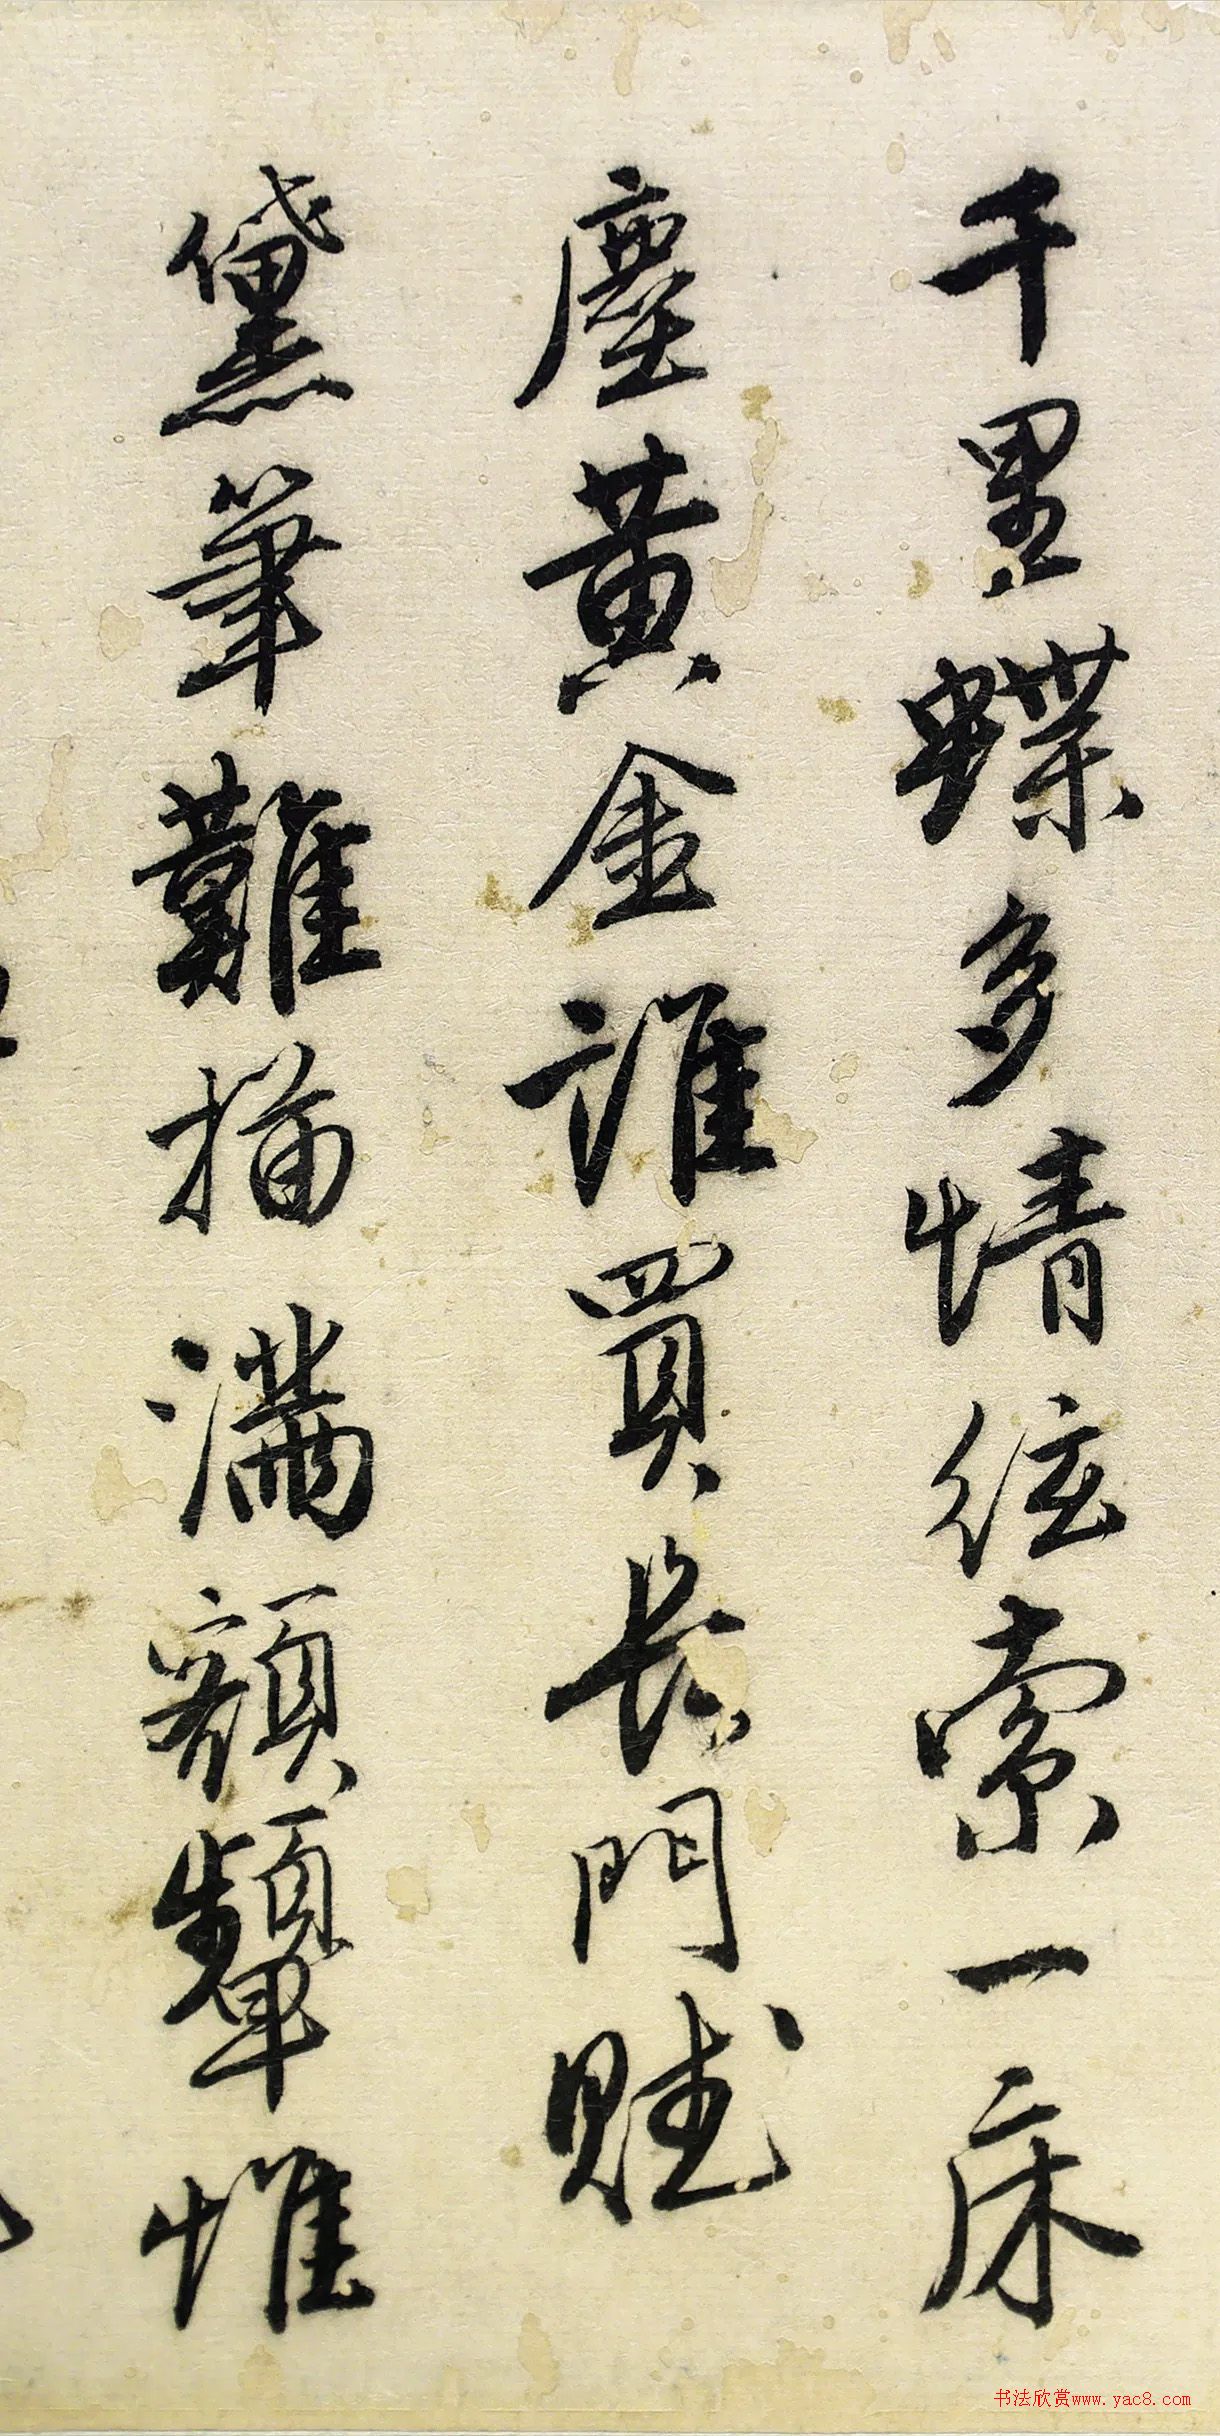 千里蝶多情絃索一床
塵黄金誰買長門賦
黛筆難描滿額顰惟
书法欣赏www.yac8.com